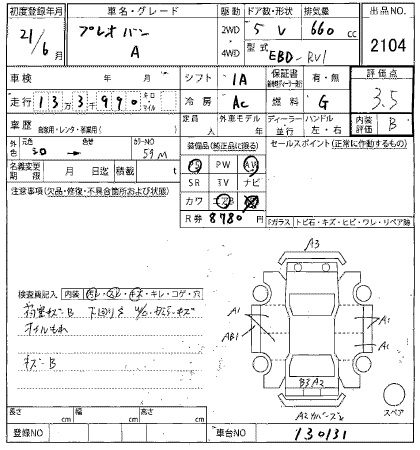 初度登録年月
21/6月
車名・グレード
プレオバン
A
駆動
2WD
4WD
ドア数・形状
5 V
排気量
660 cc
型式
EBD-RV1
出品NO.
2104
車検 年 月
シフト
IA
保証書
有・無
評価点
3.5
走行 133990 キロ マイル
冷房
AC
燃料
G
内装評価
B
車歴
自家用・レンタ・事業用( )
定員
人
外車モデル
年
ディーラー
並行
ハンドル
左・右
外色
元色
色替
カラーNO
59M
名義変更期限
月 日迄
積載 t
装備品(純正品に限る)
PS PW AW
SR TV ナビ
カワ エアB
R券 8780円
セールスポイント(正常に作動するもの)
注意事項(欠品・修復・不具合箇所および状態)
Fガラス トビ石・キズ・ヒビ・ワレ・リペア跡
検査員記入
内装 汚レ・スレ・キズ・キレ・コゲ・穴
荷室キズB
オイルもれ
キズB
A3
A1
AB1
A1
A1
B3 A2
スペア
長さ cm
幅 cm
高さ cm
登録NO
車台NO
130131